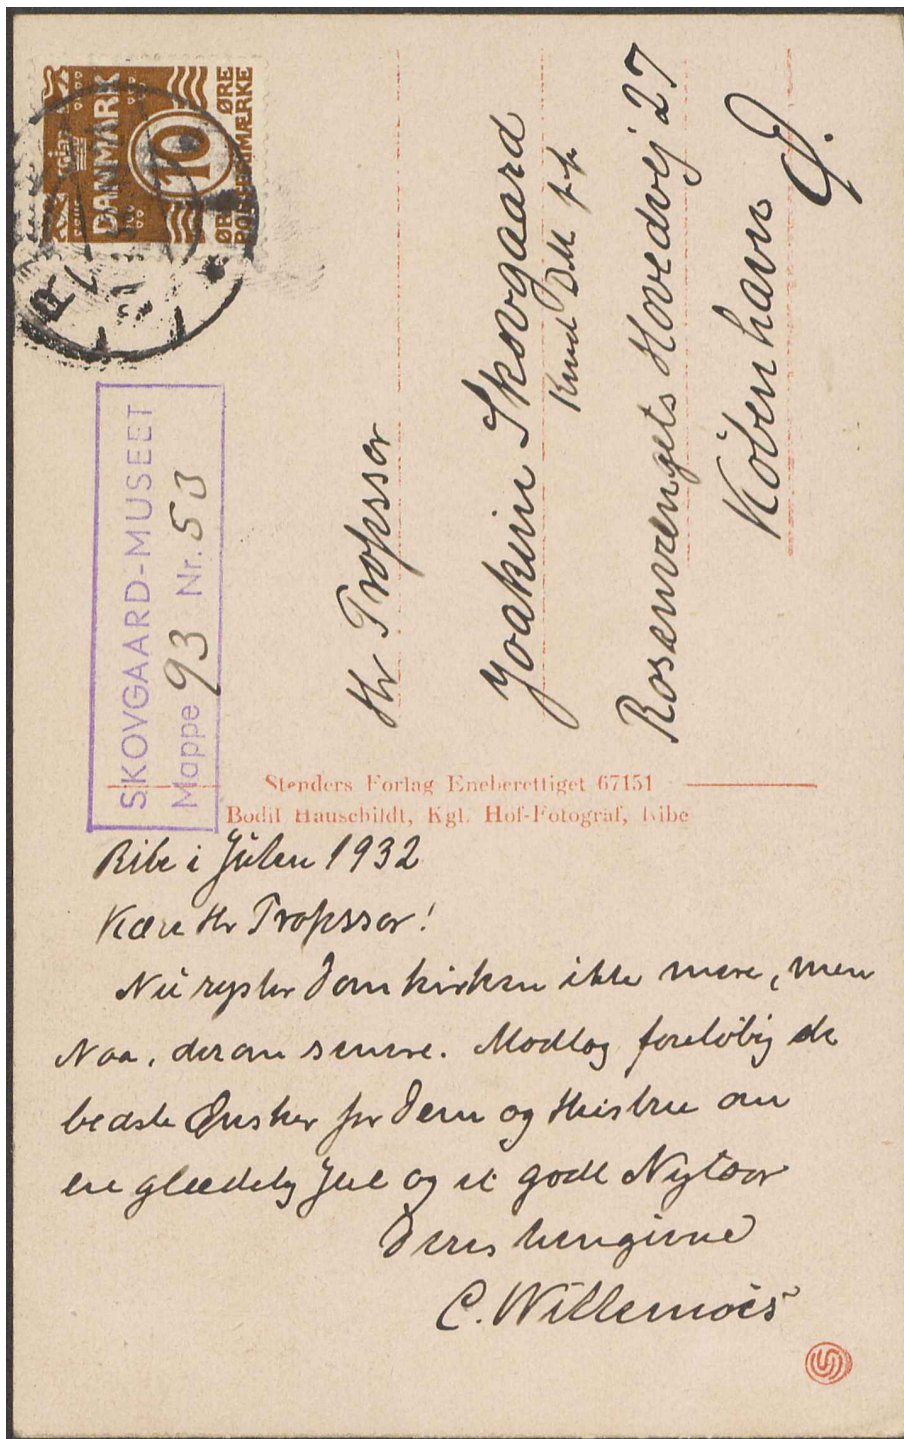 DANMARK
10
ØRE ØRE
POSTFRIMÆRKE
SKOVGAARD-MUSEET
Mappe 93 Nr. 53
Hr Professor
Joakim Skovgaard
Knd DM pp
Rosenvængets Hovedvej 27
København Ø.
Stenders Forlag Eneberettiget 67151
Bodil Hauschildt, Kgl. Hof-Fotograf, Ribe
Ribe i Julen 1932
Kære Hr Professor!
Nu ryster Domkirken ikke mere, men
Naa, derom senere. Modtag foreløbig de
bedste Ønsker for Dem og Hustru om
en glædelig Jul og et godt Nytaar
Deres hengivne
C. Willemoës